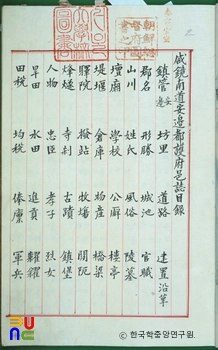 咸鏡南道安邊都護府邑誌目録
鎭管 安邊 坊里 道路 建置沿革
郡名 形勝 城池 官職
山川 姓氏 風俗 陵墓
壇廟 學校 公廨 樓亭
堤堰 倉庫 物産 橋梁
驛院 撥站 牧塲 關阨
烽燧 寺刹 古蹟 鎭堡
人物 忠臣 孝子 烈女
旱田 水田 進貢 糶糴
田税 均税 俸廩 軍兵
한국학중앙연구원